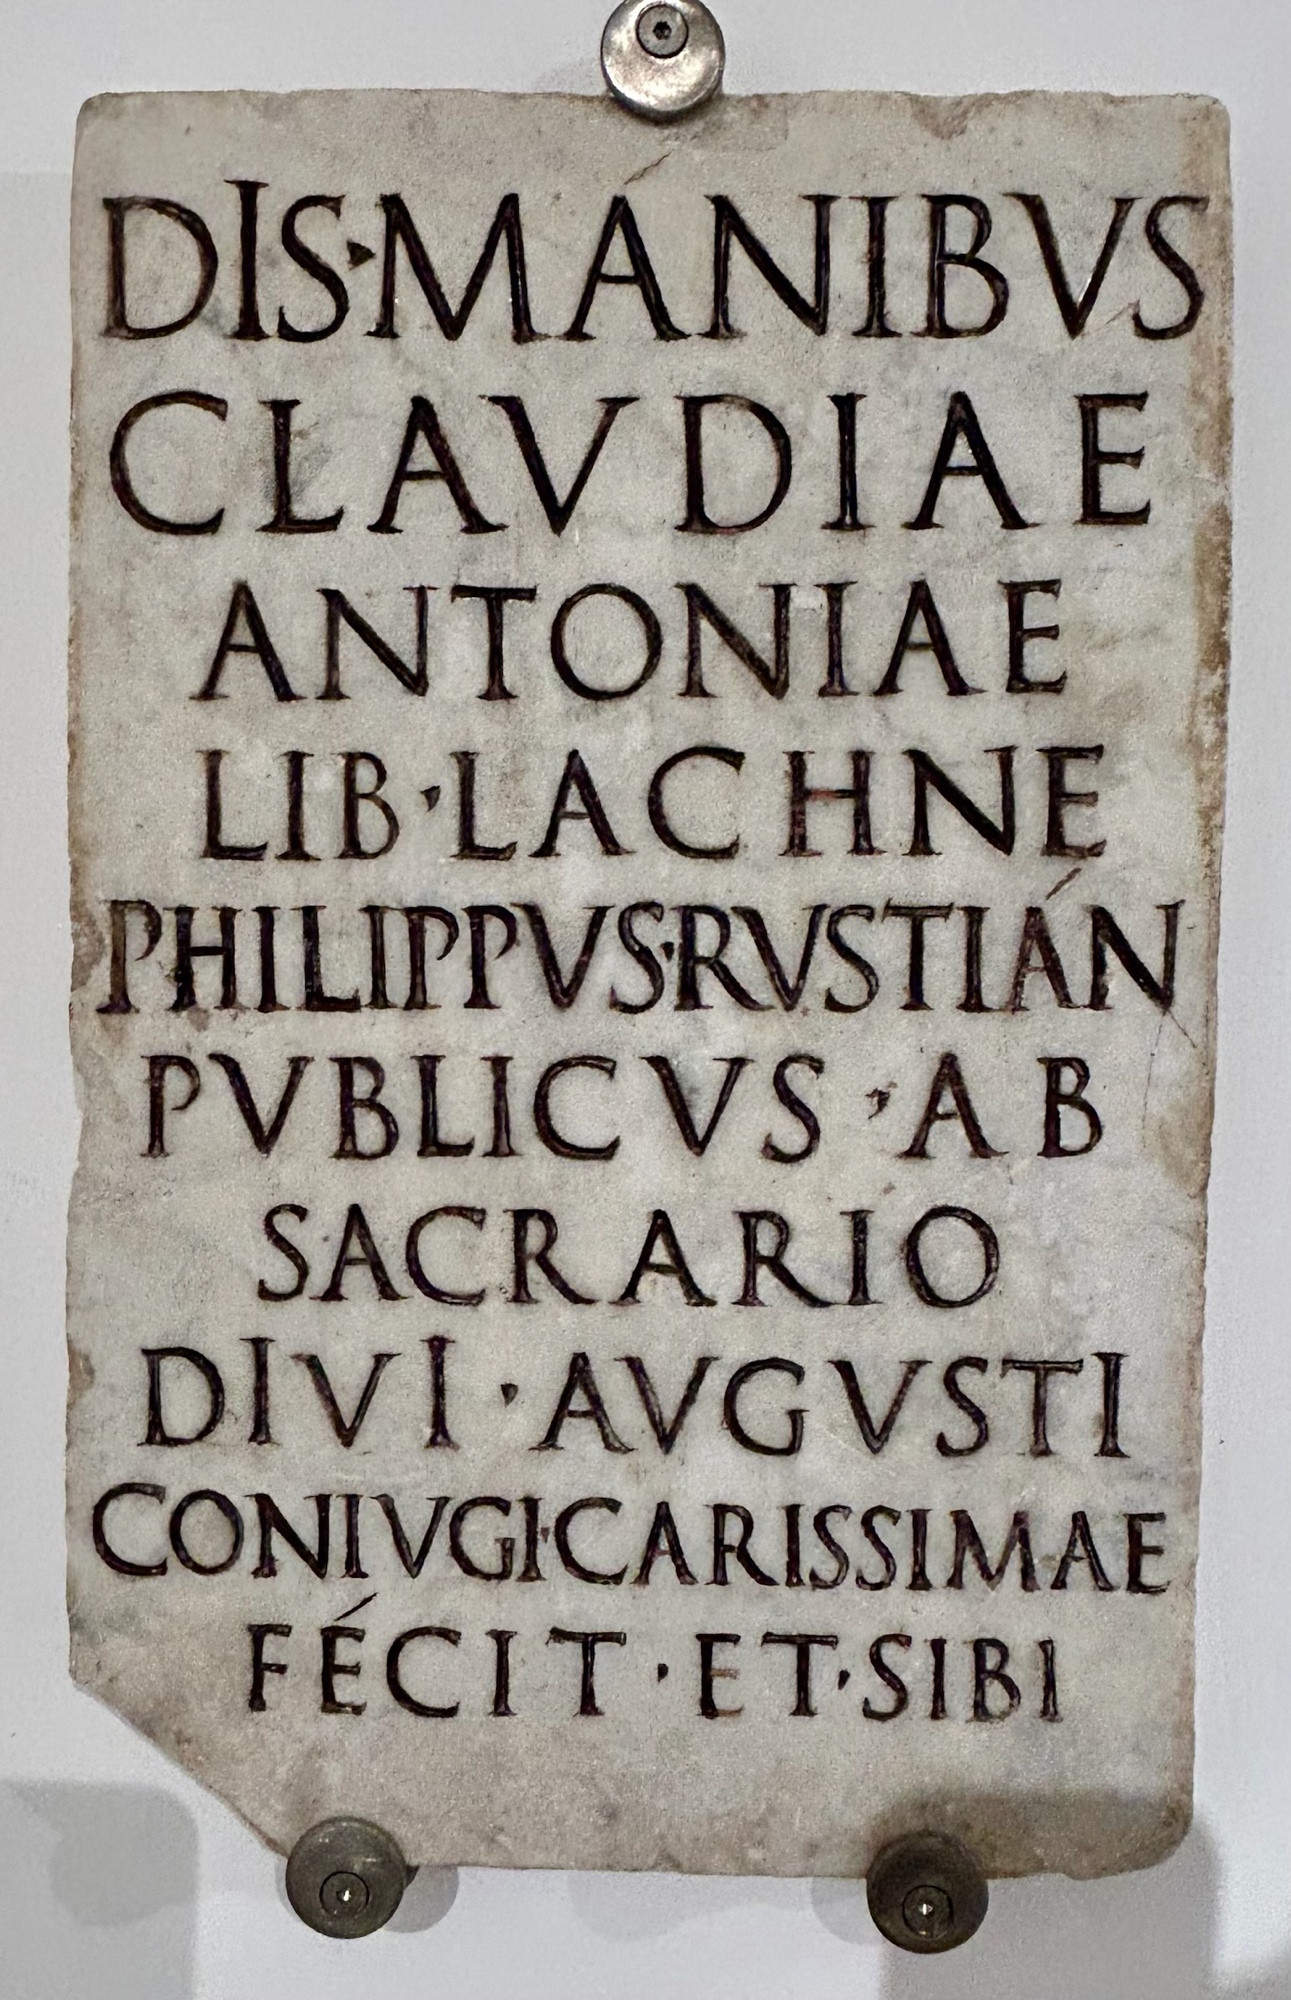 DIS·MANIBVS
CLAVDIAE
ANTONIAE
LIB·LACHNE
PHILIPPVS·RVSTIÁN
PVBLICVS·AB
SACRARIO
DIVI·AVGVSTI
CONIVGI·CARISSIMAE
FÉCIT·ET·SIBI